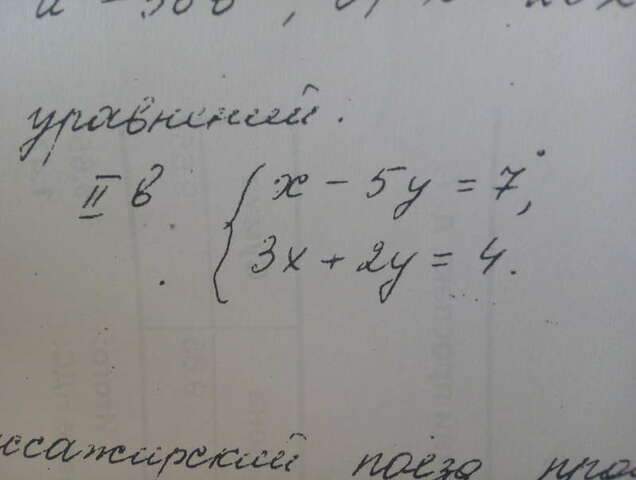 уравнений.
II в { x - 5y = 7,
3x + 2y = 4.
ссажирский поезд